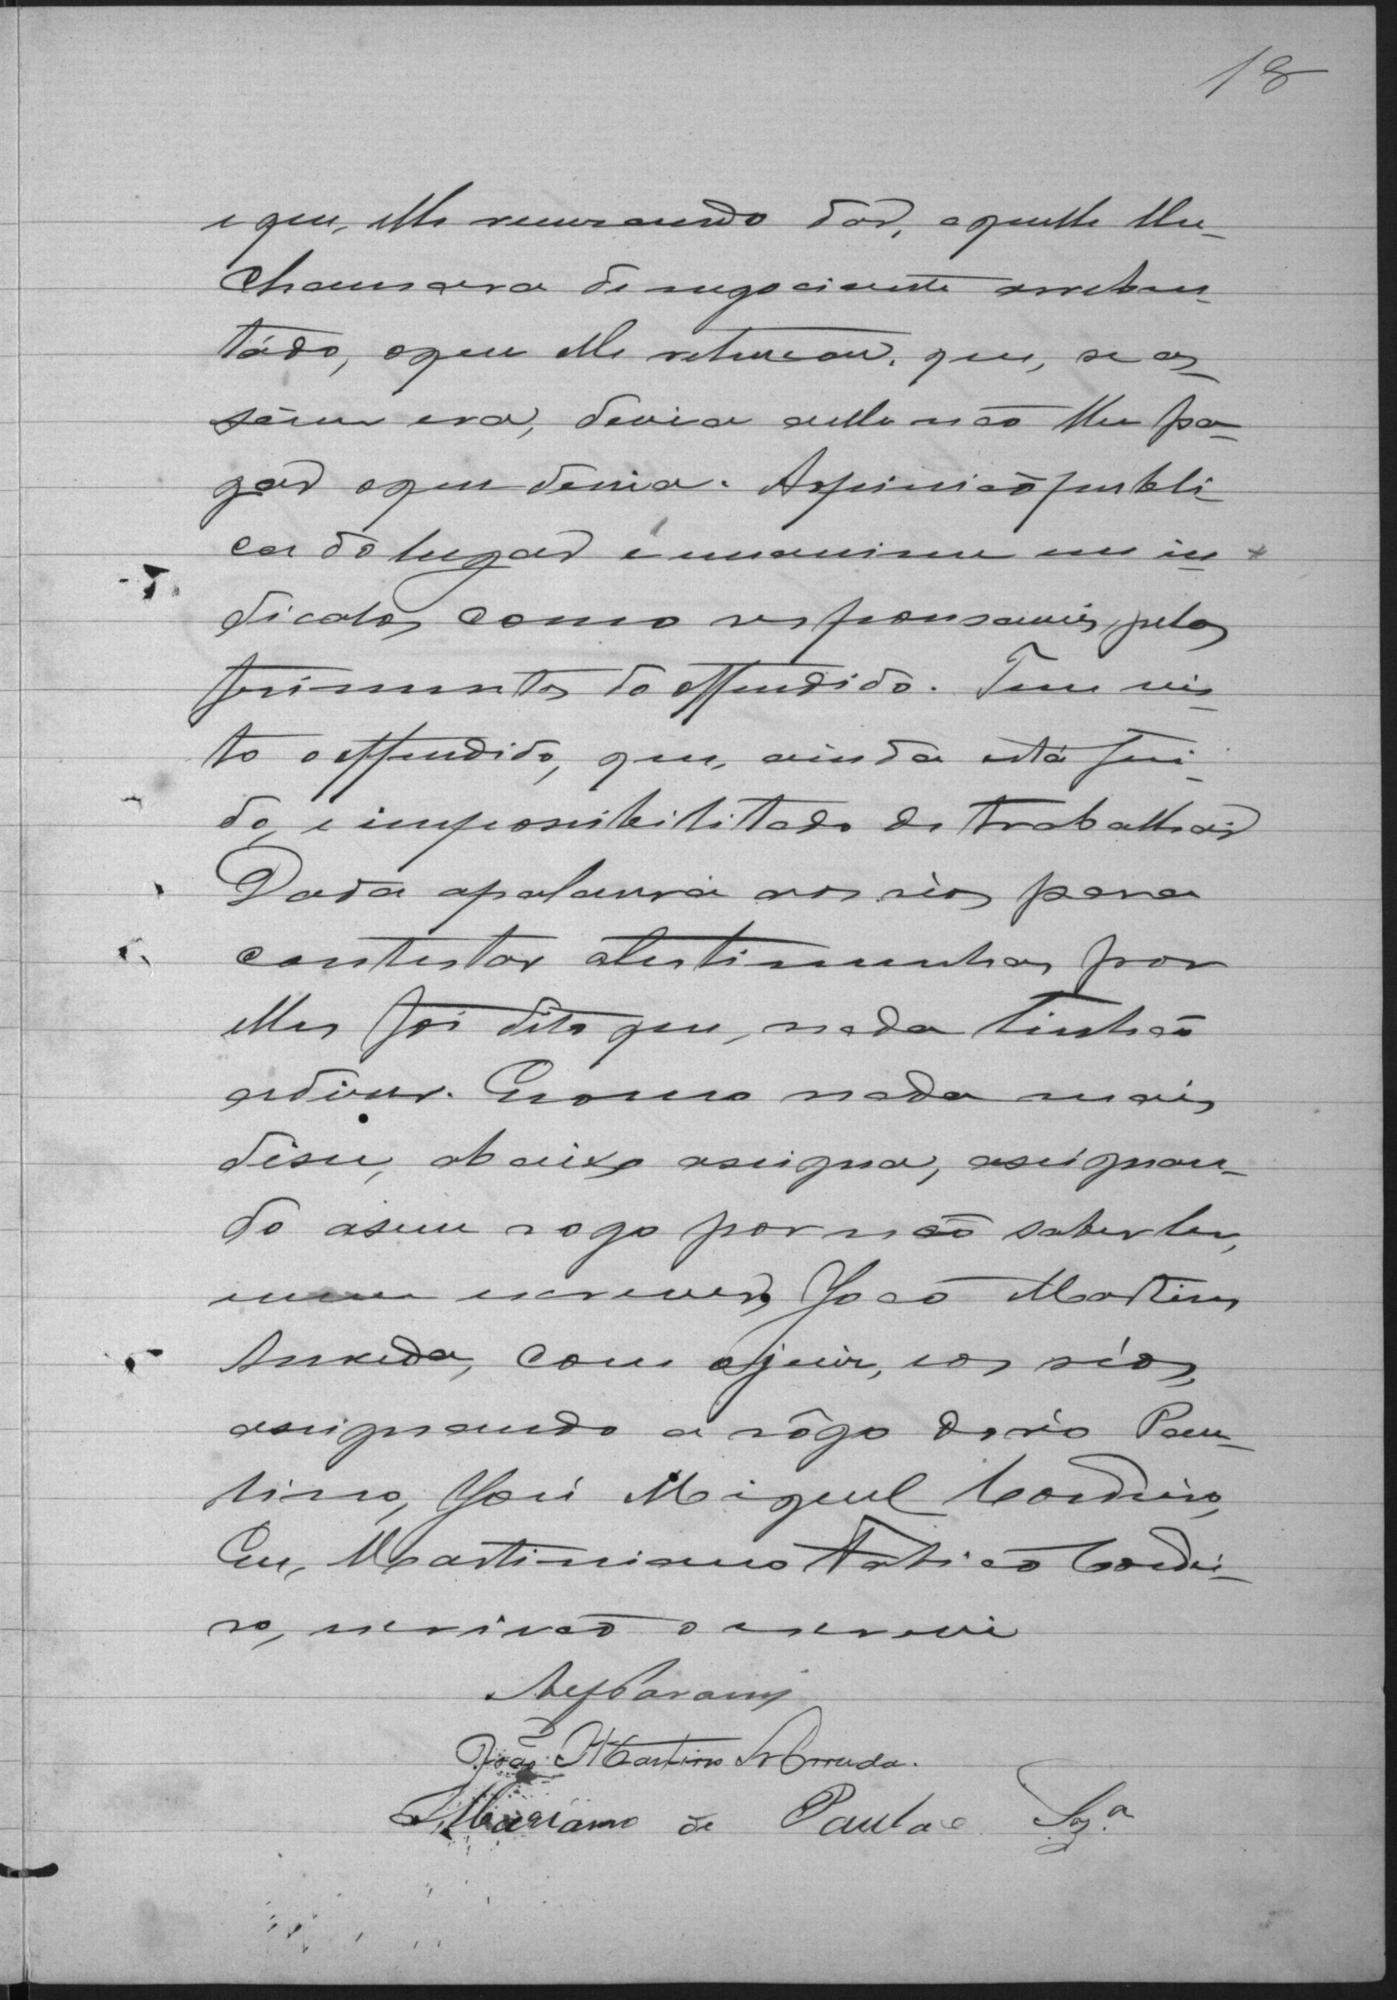 18
e que, elle recusando dar, aquelle lhe
chamara de negociante arreben-
tádo, e que elle retrucou, que, se as-
sim era, devia a elle não lhe pa-
gar o que devia. A opinião publi-
ca do lugar é unanime em in-
dicalos como responsaveis, pelos
ferimentos do offendido. Tem vis-
to o offendido, que, ainda está feri-
do, e impossibilitado de trabalhar
Dada a palavra aos réos para
contestar a testimunha, por
elles foi dito que, nada tinhão
a dizer. E como nada mais
disse, abaixo assigna, assignan-
do a seu rogo por não saber ler,
nem escrever, João Martins
Arruda, com o juiz, e os réos,
assignando a rôgo do réo Pau-
lino, José Miguel Cordeiro,
Eu, Martiniano Cordei-
ro, escrivão o escrevi
João Martins Arruda.
Mariano de Paula Sz.ª